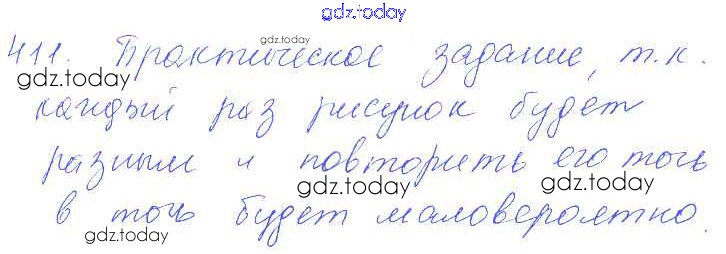 gdz.today
411. Практическое задание, т.к.
gdz.today
gdz.today
каждый раз рисунок будет
gdz.today
разным и повторить его точь
gdz.today
gdz.today
в точь будет маловероятно.
gdz.today